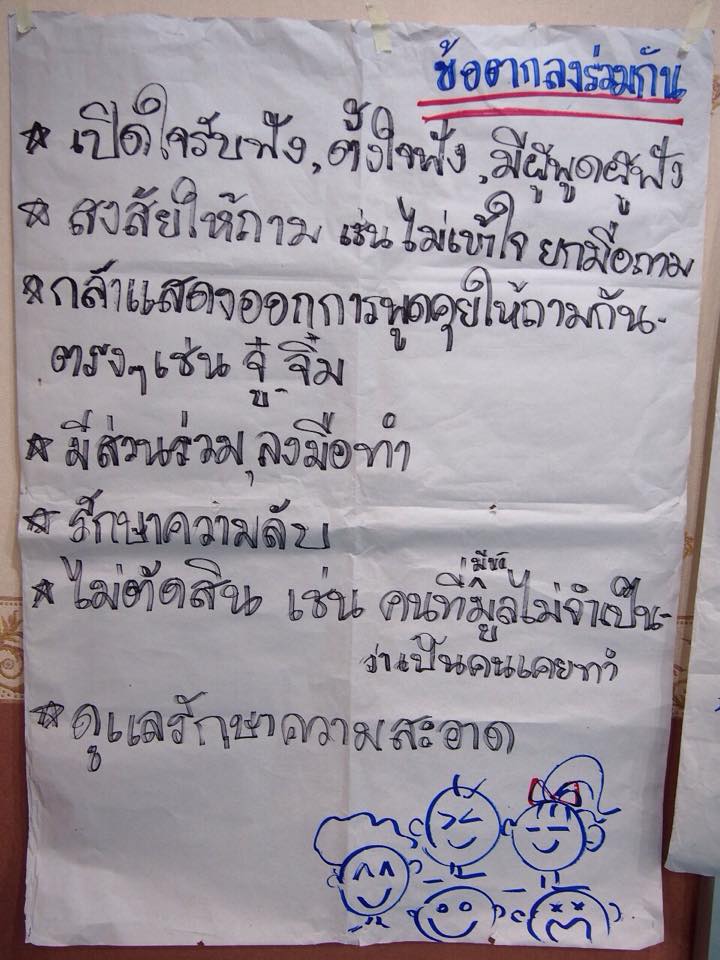 ข้อตากลงร่วมกัน
☆ เปิดใจรับฟัง, ตั้งใจฟัง, มีผู้พูดผู้ฟัง
☆ สงสัยให้ถาม เช่น ไม่เข้าใจ ยกมือถาม
☆ กล้าแสดงออกการพูดคุยให้ถามกัน-
ตรงๆ เช่น จู๋ จิ๋ม
☆ มีส่วนร่วม, ลงมือทำ
☆ รักษาความลับ
☆ ไม่ตัดสิน เช่น คนที่มีข้อมูลไม่จำเป็น-
ว่าเป็นคนเคยทำ
☆ ดูแลรักษาความสะอาด